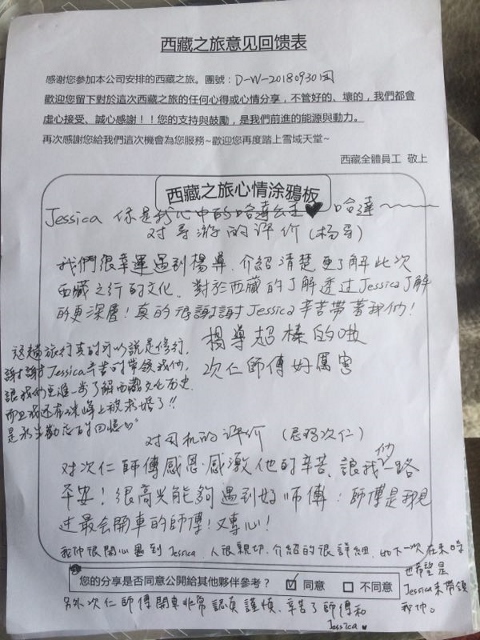 西藏之旅意见回馈表
感謝您參加本公司安排的西藏之旅。團號：D-W-20180930团
歡迎您留下對於這次西藏之旅的任何心得或心情分享，不管好的、壞的，我們都會
虛心接受、誠心感謝！！您的支持與鼓勵，是我們前進的能源與動力。
再次感謝您給我們這次機會為您服務~歡迎您再度踏上雪域天堂~
西藏全體員工 敬上
西藏之旅心情涂鴉板
Jessica 你是我心中的哈達公主♥ 哈達~~~
对导游的评价(杨导)
我們很幸運遇到楊導，介紹清楚更了解此次
西藏之行的文化，對於西藏的了解透过Jessica了解
的更深層！真的很謝謝Jessica辛苦帶著我們！
楊導超棒的啦
次仁師傅好厲害
這趟旅行真的可以說是修行，
謝謝Jessica辛苦的带领我們，
讓我們更進一步了解西藏文化历史，
而且我还在珠峰上被求婚了!!
是永生難忘的回憶
对司机的评价(尼玛次仁)
对次仁師傅感恩.感激他的辛苦，讓我们一路
平安！很高兴能夠遇到好師傅！師傅是我見
过最会開車的師傅！又專心！
我們很開心遇到Jessica 人很親切，介紹的很詳細，如下一次在来時
也希望是
Jessica来带领
我們。
您的分享是否同意公開給其他夥伴參考？ ☑ 同意 □ 不同意
另外次仁師傅開車非常認真謹慎，辛苦了師傅和
Jessica♥